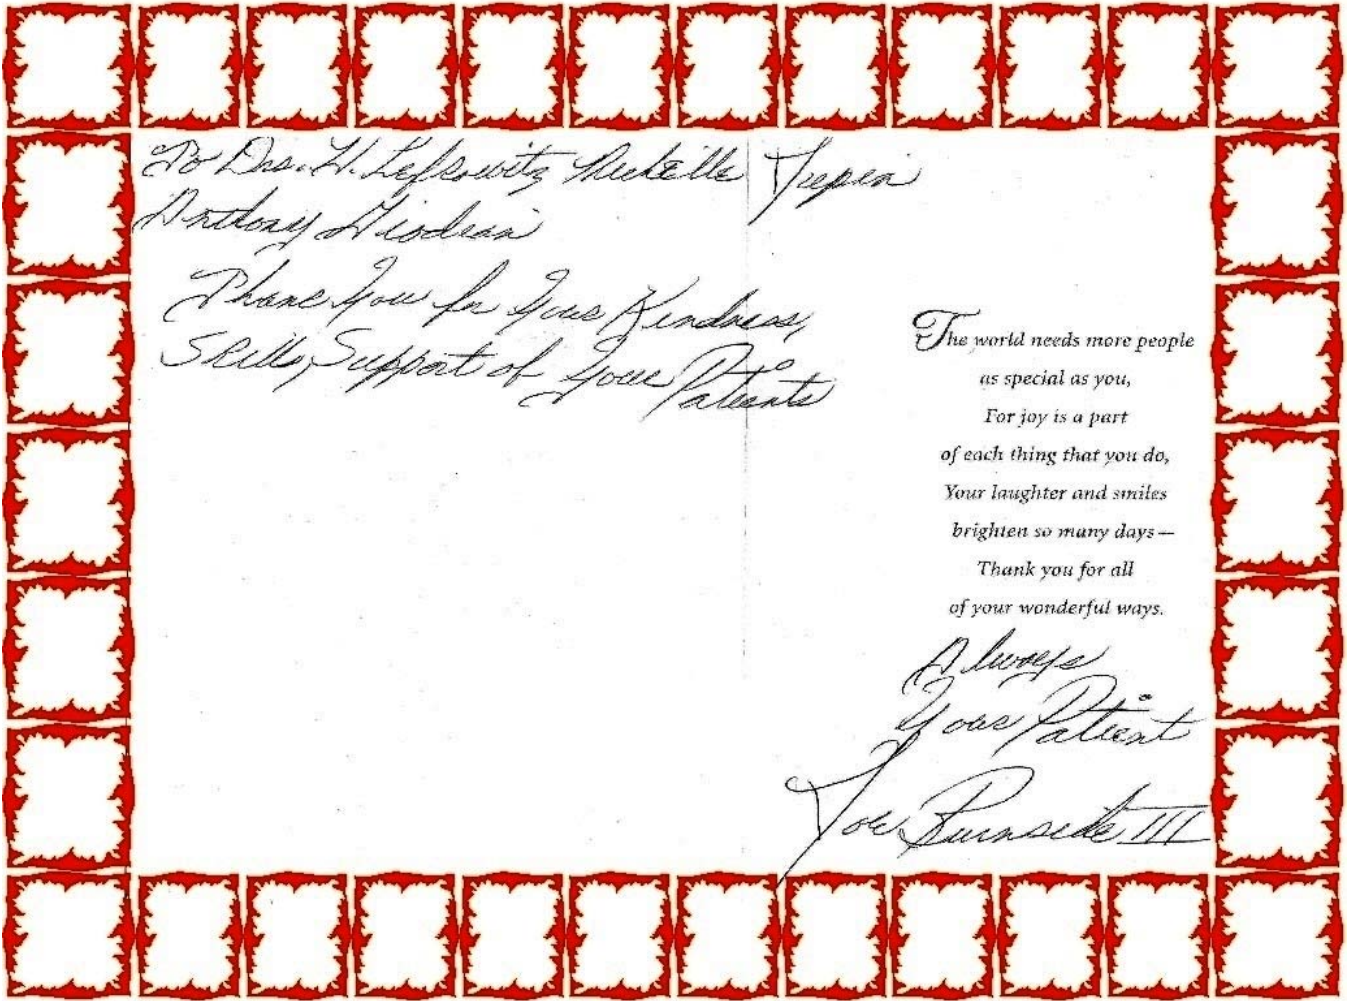 To Drs. H. Lefkowitz Michelle
Anthony
Thank You for Your Kindness,
Skills, Support of Your Patients
The world needs more people
as special as you,
For joy is a part
of each thing that you do,
Your laughter and smiles
brighten so many days—
Thank you for all
of your wonderful ways.
Always
Your Patient
Joe Burnside III